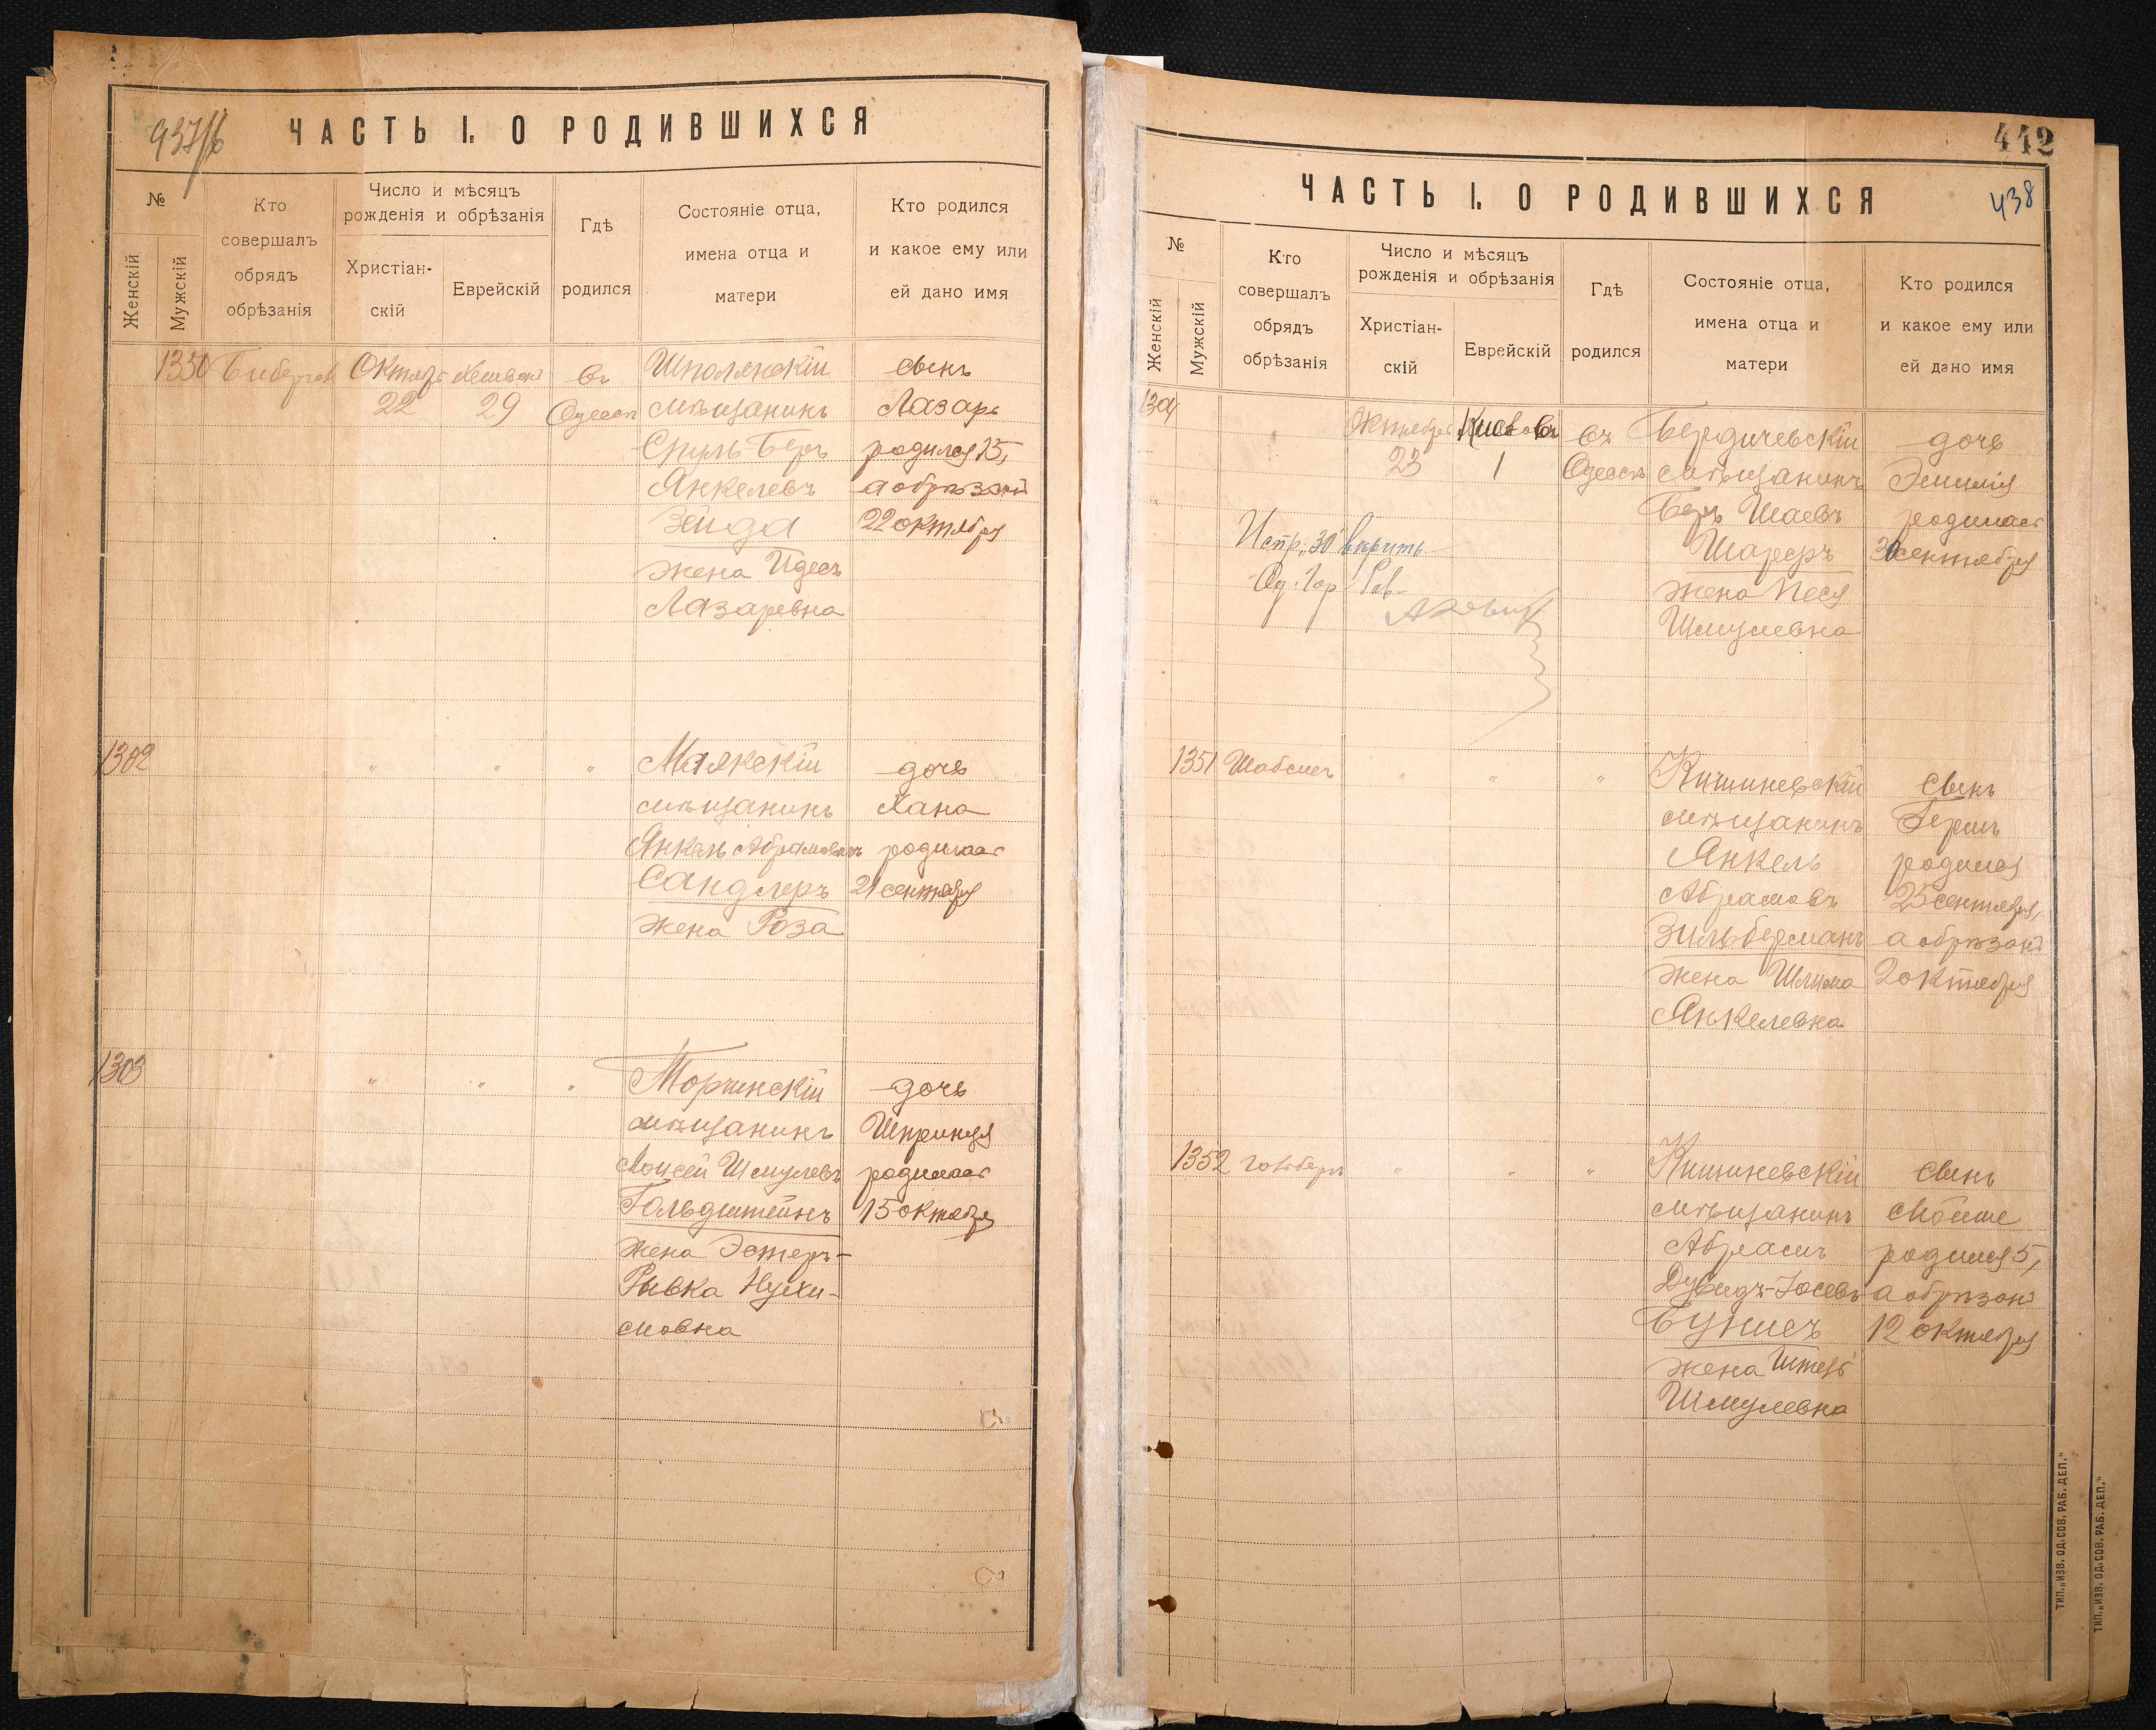 937/6
ЧАСТЬ I. О РОДИВШИХСЯ
№
Женскій
Мужскій
Кто
совершалъ
обрядъ
обрѣзанія
Число и мѣсяцъ
рожденія и обрѣзанія
Христіан-
скій
Еврейскій
Гдѣ
родился
Состояніе отца,
имена отца и
матери
Кто родился
и какое ему или
ей дано имя
1350
22
29
въ
Одессѣ
Шполянскій
мѣщанинъ
Сруль-Беръ
Янкелевъ
Зейда
жена Идесъ
Лазаревна
сынъ
Лазарь
родился 15,
а обрѣзанъ
22 октября
1302
"
"
"
Маякскій
мѣщанинъ
Янкель Абрамовичъ
Сандлеръ
жена Роза
дочь
Хана
родилась
21 сентября
1303
"
"
"
Торжинскій
мѣщанинъ
Моисей Шмулевъ
Гольдштейнъ
жена Эстеръ-
Рывка Нухи-
мовна
дочь
Шпринця
родилась
15 октября
442
438
ЧАСТЬ I. О РОДИВШИХСЯ
№
Женскій
Мужскій
Кто
совершалъ
обрядъ
обрѣзанія
Число и мѣсяцъ
рожденія и обрѣзанія
Христіан-
скій
Еврейскій
Гдѣ
родился
Состояніе отца,
имена отца и
матери
Кто родился
и какое ему или
ей дано имя
Октября
23
1
въ
Одессѣ
Бердичевскій
мѣщанинъ
Беръ Шаевъ
Шареръ
жена Песя
Шмулевна
дочь
Эмилія
родилась
30 сентября
Испр. "30" вѣрить
Од. Гор. Рав.
1351
"
"
"
Кишиневскій
мѣщанинъ
Янкель
Абрамовъ
Зильберманъ
жена Шлима
Янкелевна
сынъ
Гершъ
родился
25 сентября,
а обрѣзанъ
2 октября
1352
"
"
"
Кишиневскій
мѣщанинъ
Абрамъ
Дувидъ-Іосевъ
жена
Шмулевна
сынъ
Мойше
родился 5,
а обрѣзанъ
12 октября
ТИП. „ИЗВ. ОД. СОВ. РАБ. ДЕП."
ТИП. „ИЗВ. ОД. СОВ. РАБ. ДЕП."